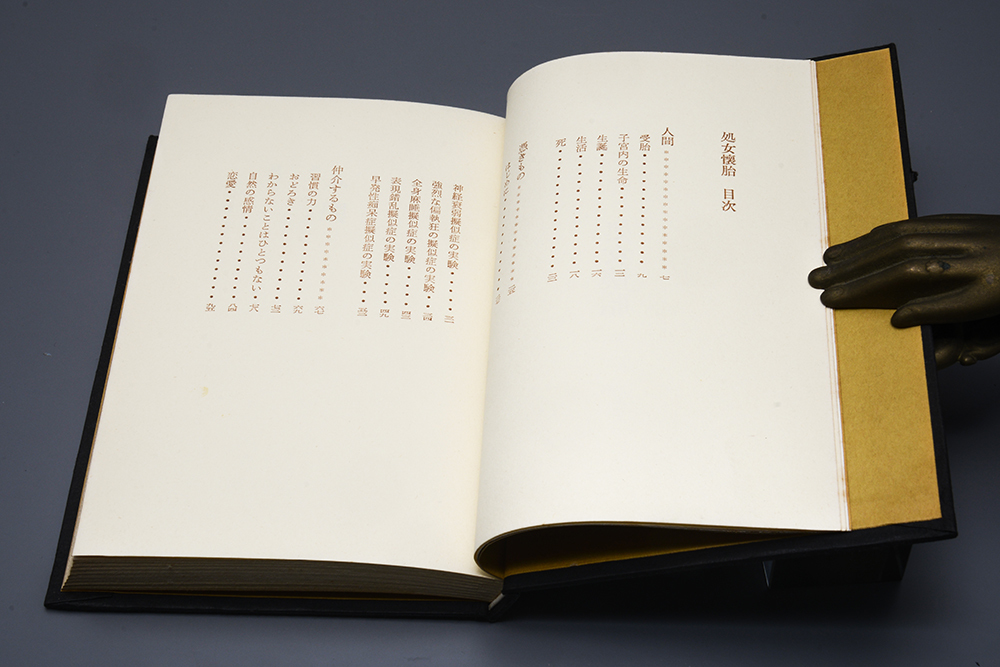 処女懐胎 目次
人間・・・・・・・・・・・・七
受胎・・・・・・・・・・・・九
子宮内の生命・・・・・・・・一二
生誕・・・・・・・・・・・・一六
生活・・・・・・・・・・・・一八
死・・・・・・・・・・・・・
憑きもの
神経衰弱擬似症の実験・・・・・
強烈な偏執狂の擬似症の実験・・・三四
全身麻痺擬似症の実験・・・・・四三
表現錯乱擬似症の実験・・・・・四九
早発性痴呆症擬似症の実験・・・五三
仲介するもの・・・・・・・・・六七
習慣の力・・・・・・・・・・・六九
おどろき・・・・・・・・・・・七三
わからないことはひとつもない・・七六
自然の感情・・・・・・・・・・八四
恋愛・・・・・・・・・・・・・九五